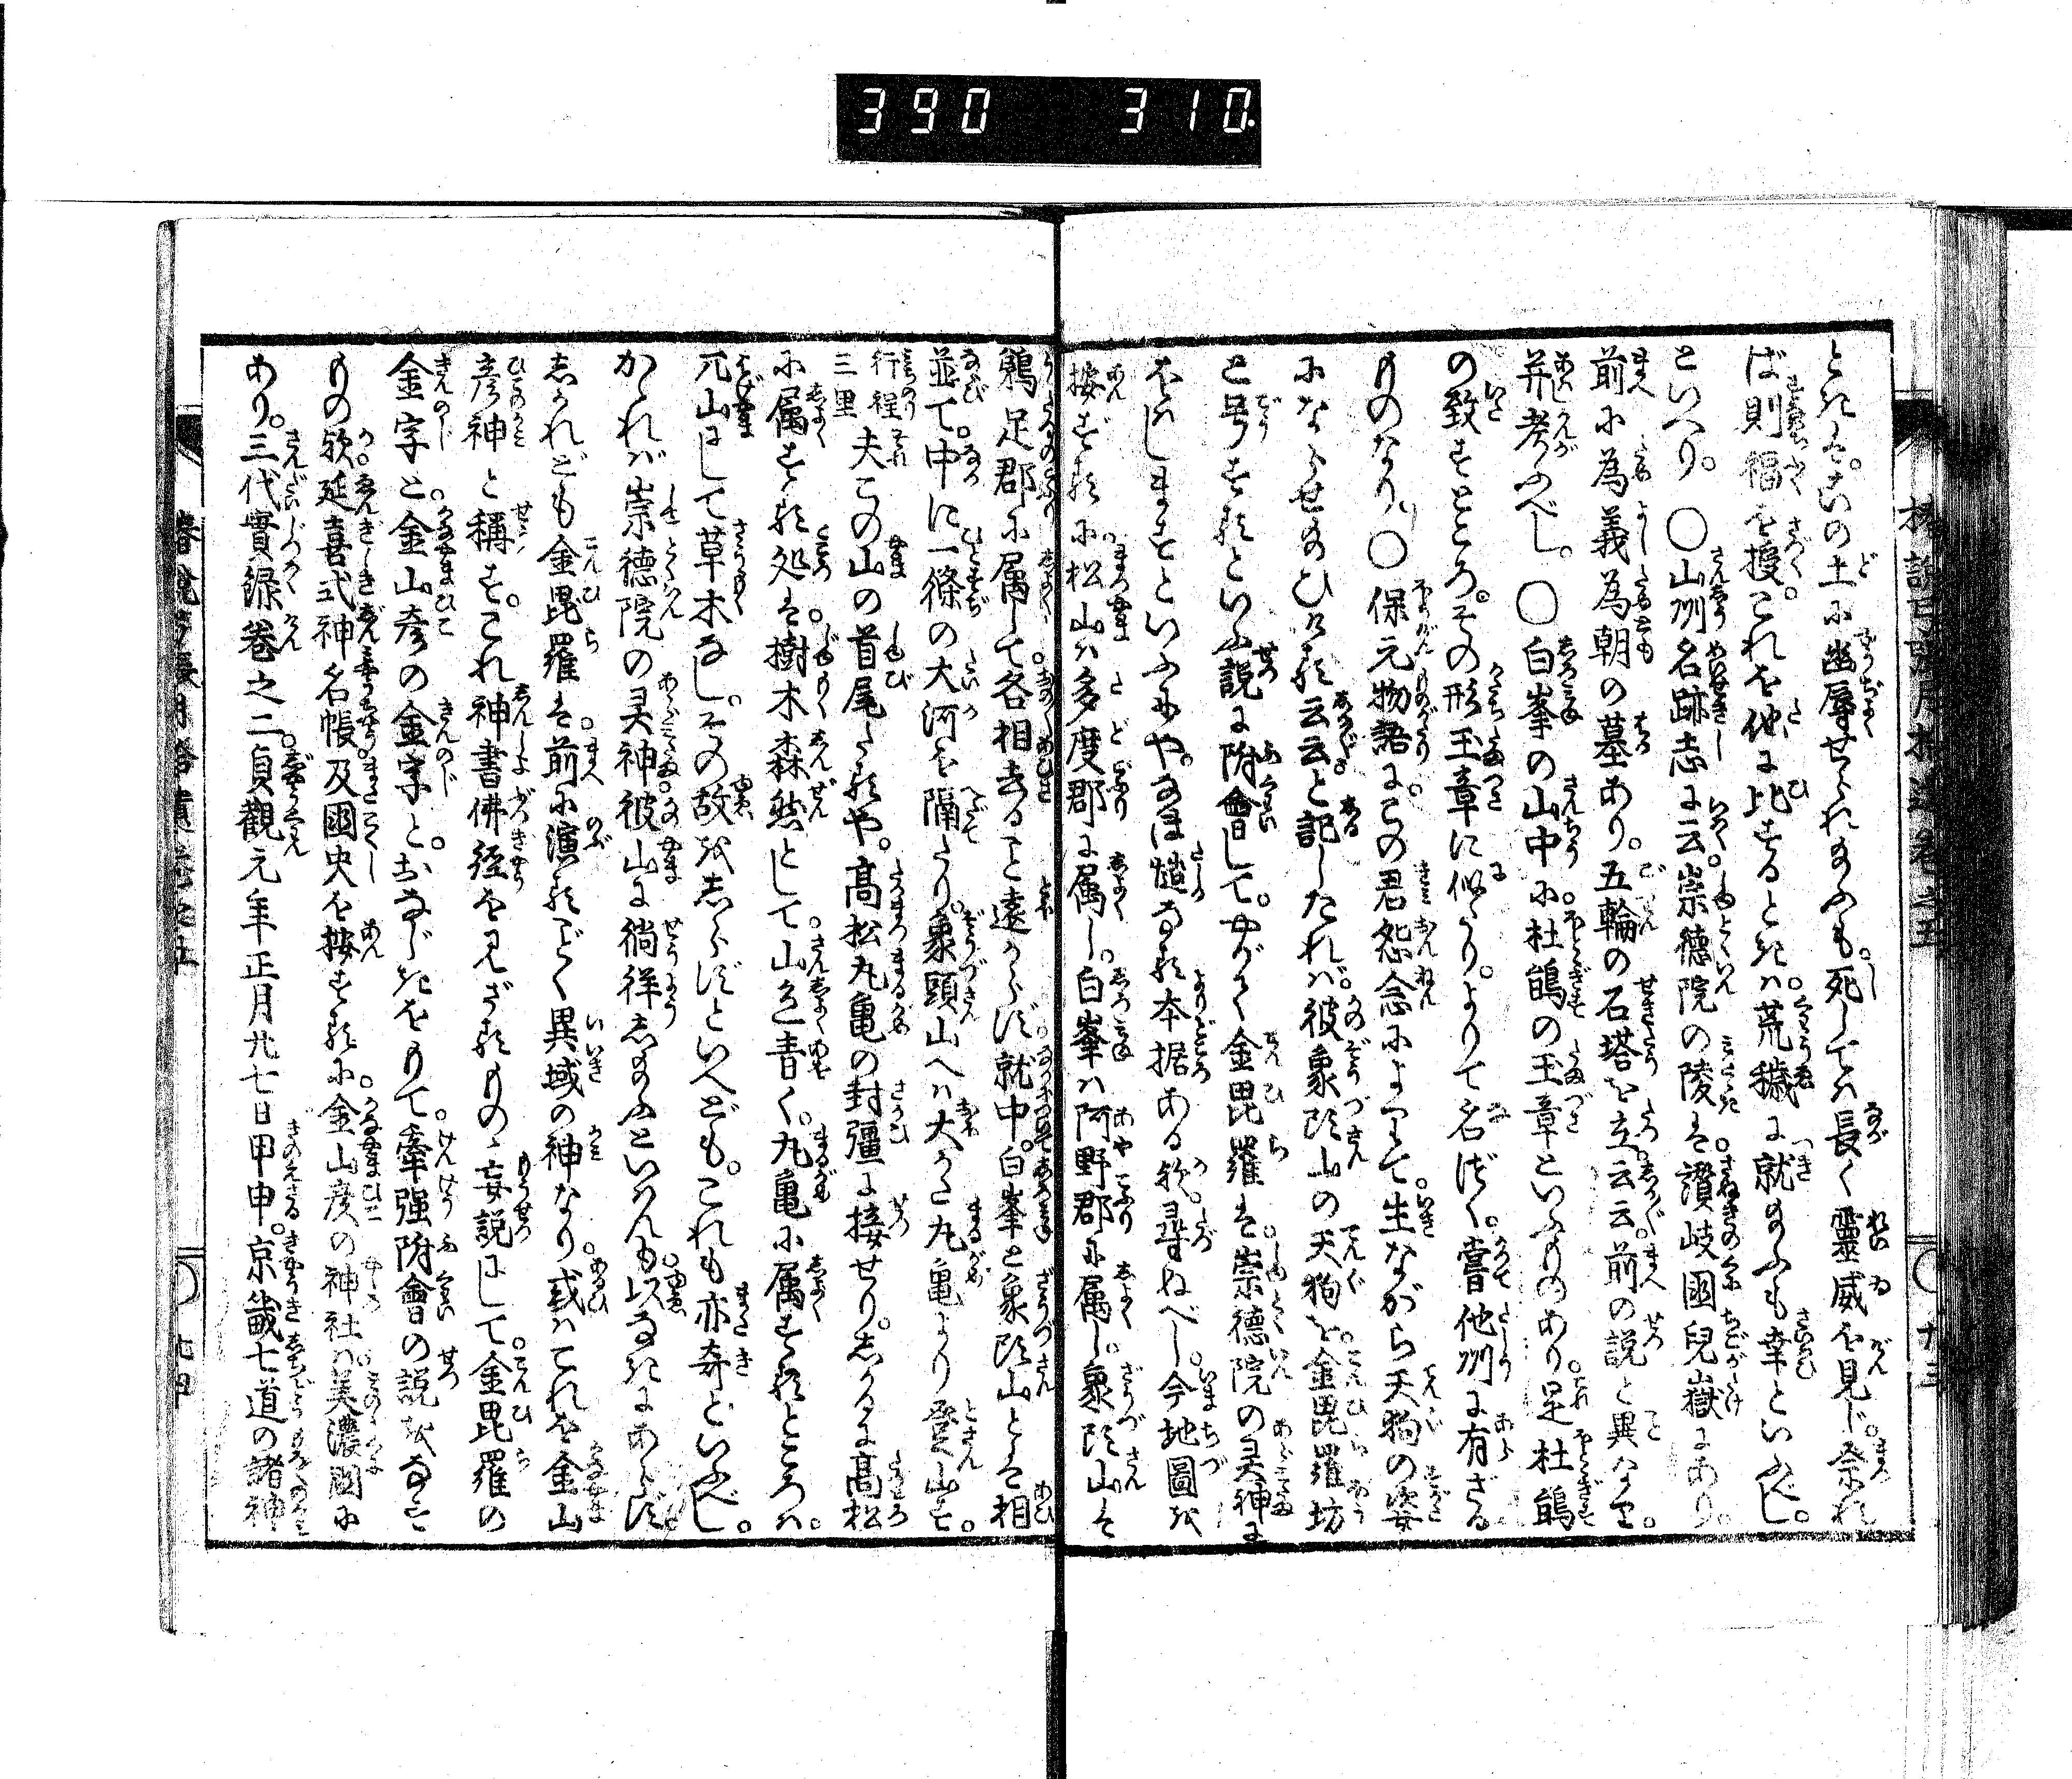 390 310.
ときは。この土に幽辱せられ給ふも。死しては長く靈威を見じ。祭れ
ば則福を授く。これを他に比するときは。荒穢に就給ふも幸といふべし。
といへり。○山州名跡志に云。崇徳院の陵は。讃岐國兒嶽にあり。
前に為義為朝の墓あり。五輪の石塔を立云云。前の説と異なり。
并考ふべし。○白峯の山中に。杜鵑の玉章といふものあり。是杜鵑
の致すところ。その形玉章に似たり。よりて名づく。嘗他州に有ざる
ものなり。○保元物語に。この君怨念によりて。生ながら天狗の姿
にならせ給ひける云云と記したれば。彼象頭山の天狗を。金毘羅坊
と号するといふ説に附會して。やがて金毘羅は。崇徳院の灵神に
をはしますといふにや。なほ慥なる本据ある欤。尋ぬべし。今地圖を
按ずるに。松山は多度郡に属し。白峯は阿野郡に属し。象頭山は
鵜足郡に属して。各相去ること遠からず。就中。白峯と象頭山とは相
並て。中に一條の大河を隔たり。象頭山へは大かた丸亀より登山す。
行程三里 夫この山の首尾たるや。高松丸亀の封疆に接せり。しかるに高松
に属する処は。樹木森然として。山色青く。丸亀に属するところは。
兀山にして草木なし。その故をしらずといへども。これも亦奇といふべし。
かゝれば崇徳院の灵神。彼山に徜徉し給ふといはんも。以なきにあらず。
しかれども金毘羅は。前に演るごとく異域の神なり。或はこれを金山
彦神と稱す。これ神書佛経を見ざるものゝ妄説にして。金毘羅の
金字と。金山彦の金字と。おなじきをもて。牽强附會の説をなす
もの欤。延喜式神名帳。及國史を按ずるに。金山彦の神社は。美濃國に
あり。三代實録巻之二。貞觀元年正月廿七日甲申。京畿七道の諸神